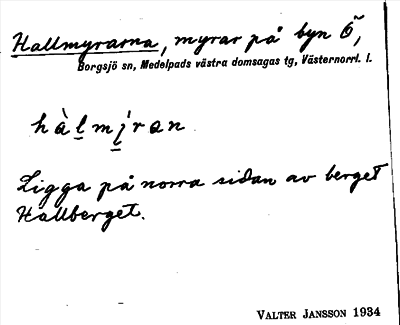 Hallmyrarna, myrar på byn Ö,
Borgsjö sn, Medelpads västra domsagas tg, Västernorrl. l.
hàl̲mí̲ran
Ligga på norra sidan av berget
Hallberget.
VALTER JANSSON 1934